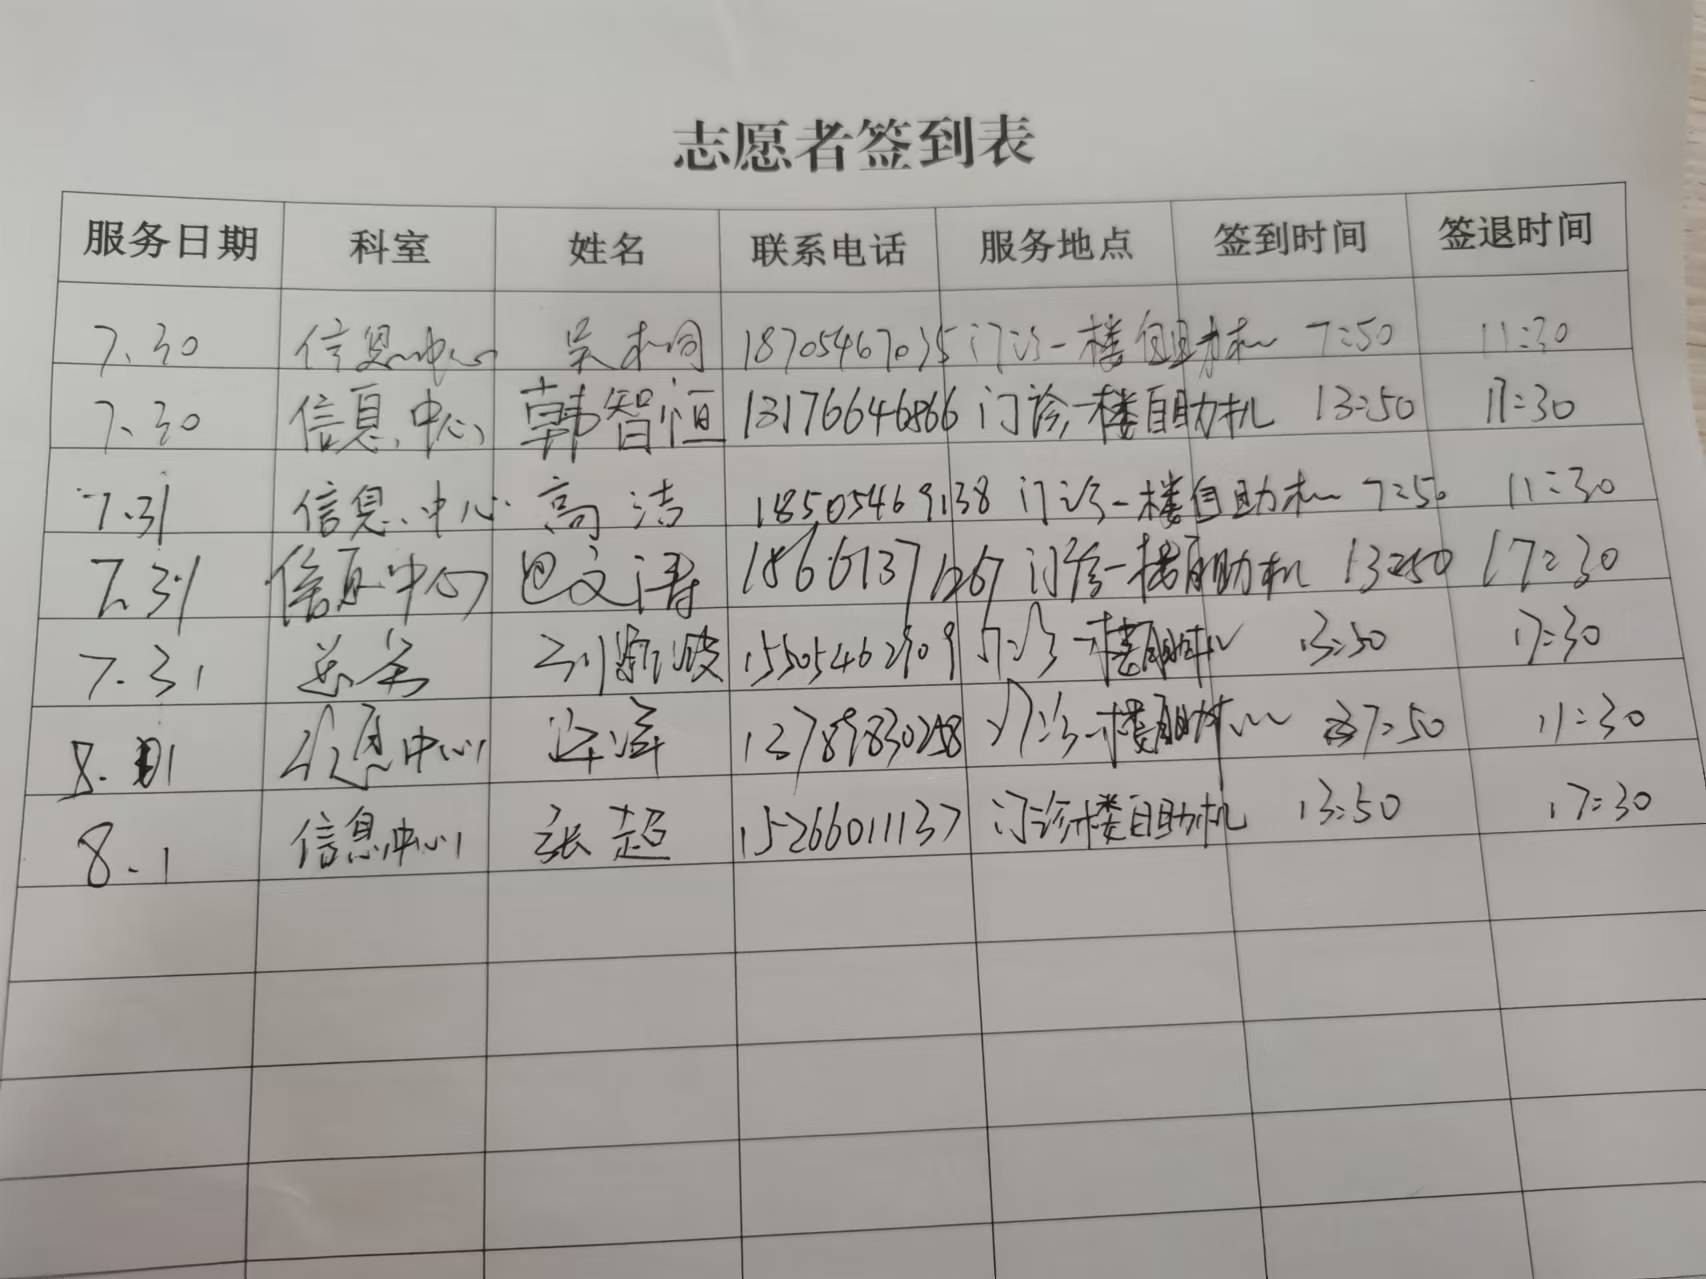 志愿者签到表
服务日期 科室 姓名 联系电话 服务地点 签到时间 签退时间
7.30 信息中心 吴 18705467035 门诊一楼自助机 7:50 11:30
7.30 信息中心 韩智恒 13176646866 门诊一楼自助机 13:50 17:30
7.31 信息中心 高洁 18505469138 门诊一楼自助机 7:50 11:30
7.31 信息中心 巴文涛 18661371267 门诊一楼自助机 13:50 17:30
7.31 刘 波 15505462909 门诊一楼自助机 13:50 17:30
8.1 信息中心 门诊一楼自助机 7:50 11:30
8.1 信息中心 张超 15266011137 门诊一楼自助机 13:50 17:30